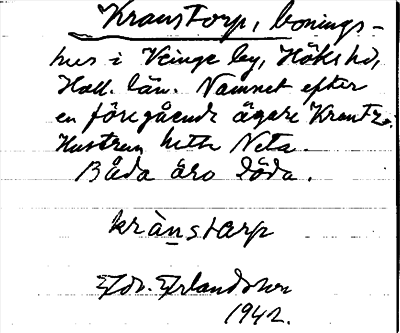 Kranstorp, bonings-
hus i Veinge by, Höks hd,
Hall. län. Namnet efter
en föregående ägare Krantz.
Hustrun hette Neta.
Båda äro döda.
krànstarp
Edv. Erlandsson
1942.